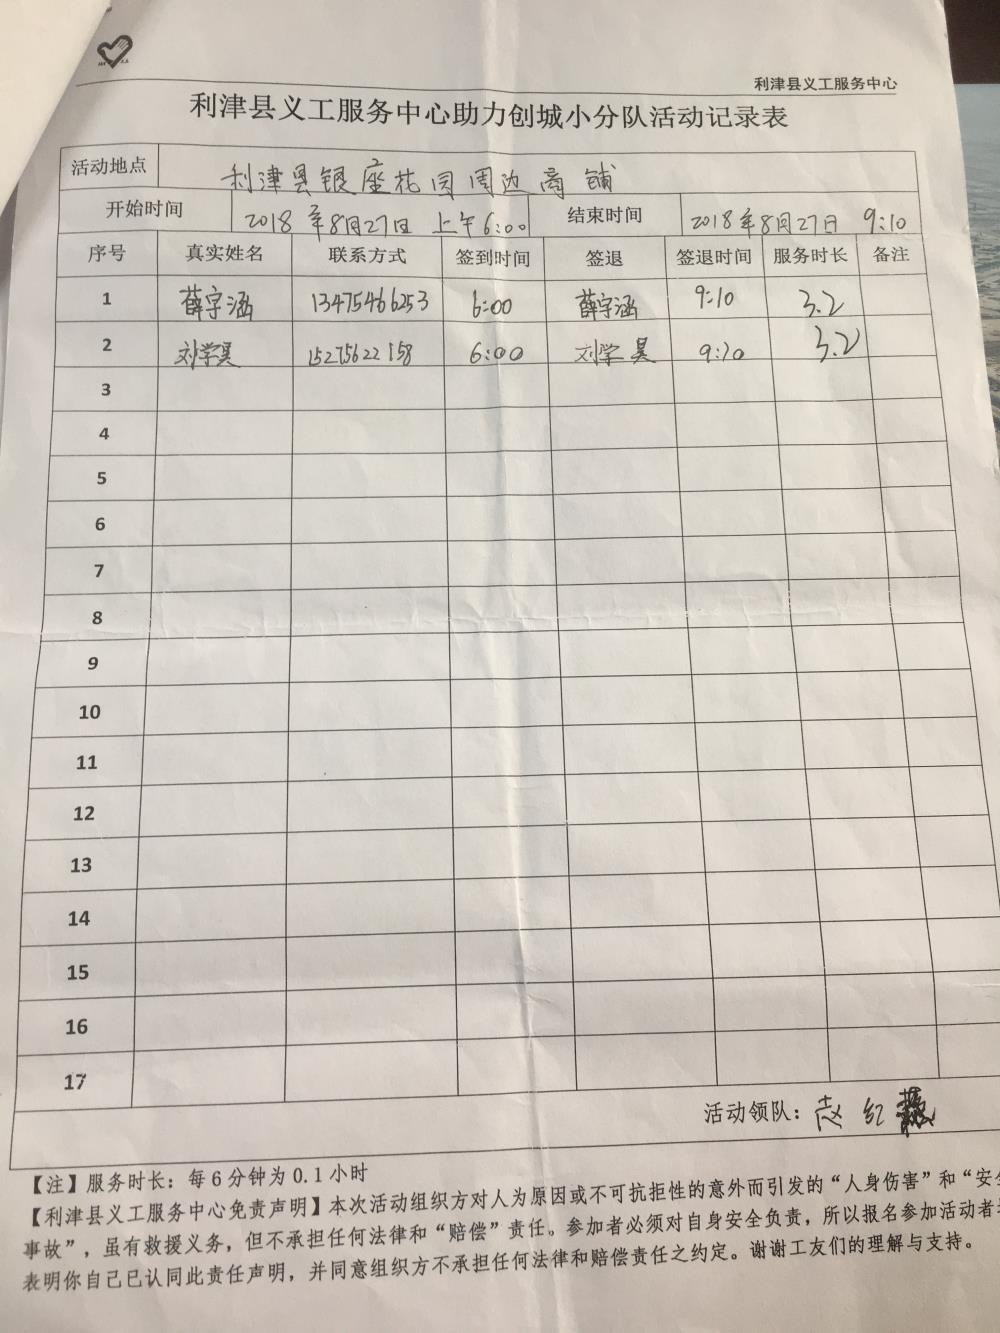 利津县义工服务中心
利津县义工服务中心助力创城小分队活动记录表
活动地点 利津县银座花园周边商铺
开始时间 2018年8月27日 上午6:00 结束时间 2018年8月27日 9:10
序号 真实姓名 联系方式 签到时间 签退 签退时间 服务时长 备注
1 薛宇涵 13475466253 6:00 薛宇涵 9:10 3.2
2 刘学昊 15275622158 6:00 刘学昊 9:10 3.2
3
4
5
6
7
8
9
10
11
12
13
14
15
16
17
活动领队：赵红
【注】服务时长：每6分钟为0.1小时
【利津县义工服务中心免责声明】本次活动组织方对人为原因或不可抗拒性的意外而引发的“人身伤害”和“安全
事故”，虽有救援义务，但不承担任何法律和“赔偿”责任。参加者必须对自身安全负责，所以报名参加活动者
表明你自己已认同此责任声明，并同意组织方不承担任何法律和赔偿责任之约定。谢谢工友们的理解与支持。